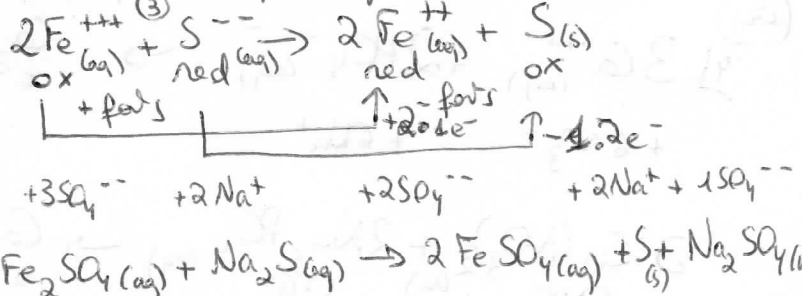 ③
2Fe⁺⁺⁺(aq) + S⁻⁻(aq) → 2Fe⁺⁺(aq) + S(s)
ox red red ox
+ forts - forts
+2.1e⁻ -1.2e⁻
+3SO₄⁻⁻ +2Na⁺ +2SO₄⁻⁻ +2Na⁺ + 1SO₄⁻⁻
Fe₂SO₄(aq) + Na₂S(aq) → 2FeSO₄(aq) + S(s) + Na₂SO₄